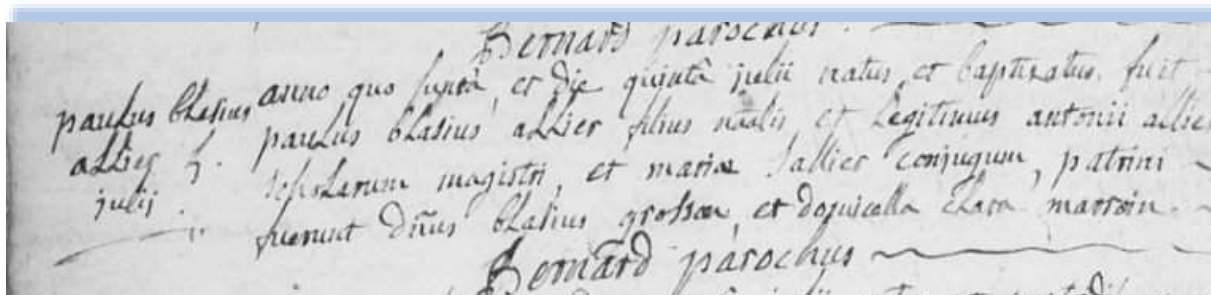 Bernard parochus.
paulus blasius
allier 5.
julij
anno quo supra, et die quintâ julii natus, et baptisatus fuit
paulus blasius allier filius nalis et legitimus antonii allier
scholarum magistri, et mariæ sallier conjugum, patrini
fuerunt dnus blasius grosson, et domicella clara marroin.
Bernard parochus